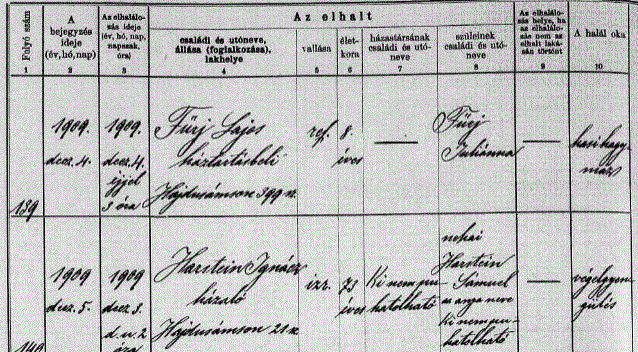 Folyó szám
A
bejegyzés
ideje
(év, hó, nap)
Az elhalálo-
zás ideje
(év, hó, nap,
napszak,
óra)
Az elhalt
családi és utóneve,
állása (foglalkozása),
lakhelye
vallása
élet-
kora
házastársának
családi és utó-
neve
szüleinek
családi és utó-
neve
Az elhalálo-
zás helye, ha
az elhalálo-
zás nem az
elhalt laká-
sán történt
A halál oka
1 2 3 4 5 6 7 8 9 10
139
1909.
decz. 4.
1909.
decz. 4.
éjjel
3 óra
Fürj Lajos
háztartásbeli
Hajdusámson 399 sz.
ref.
8.
éves
—
Fürj
Juliánna
—
hasi hagy-
máz
140
1909
decz. 5.
1909
decz. 3.
d. u. 2
óra
Harstein Ignácz
házaló
Hajdusámson 21 sz.
izr.
73
éves
Ki nem pu-
hatolható
néhai
Harstein
Sámuel
a anya neve
Ki nem pu-
hatolható
—
végelgyen-
gülés